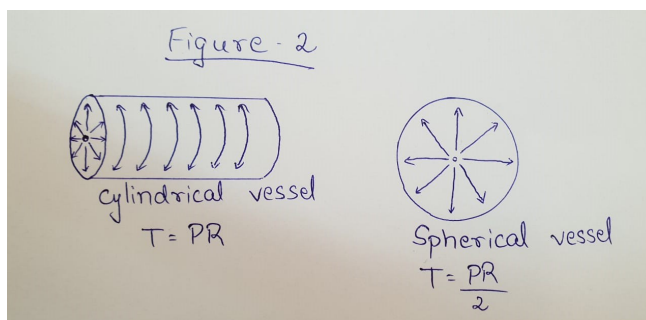 Figure - 2
Cylindrical vessel
T = PR
Spherical vessel
T = PR
2